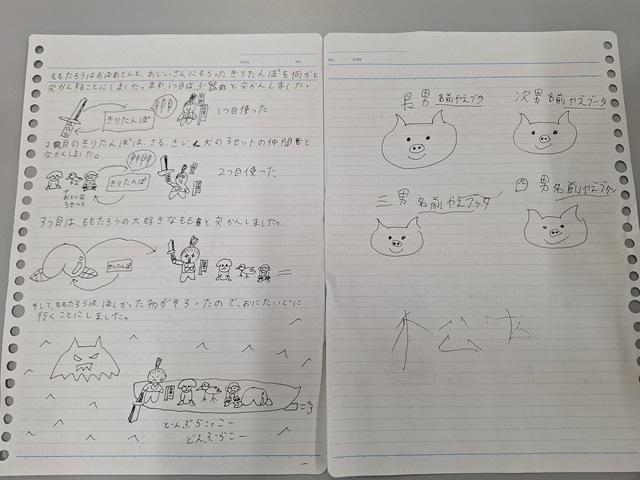 ももたろうはおばあさんと、おじいさんにもらったきりたんぽを何かと
交かんすることにしました。まず、1つ目は、ぶ器と交かんしました。
きりたんぽ
1つ目使った
2個目のきりたんぽは、さる、きじ、犬の3セットの仲間と
交かんしました。
きりたんぽ
2つ目使った
おとくな
3セット
3つ目は、ももたろうの大好きなももと交かんしました。
きりたんぽ
そして、ももたろうは、ほしかった物がそろったので、おにたいじに
行くことにしました。
どんぶらこー
どんぶらこー
長男 名前 やえブタ
次男 名前 やえブータ
三男 名前 やえブッタ
四男 名前 やえブタン